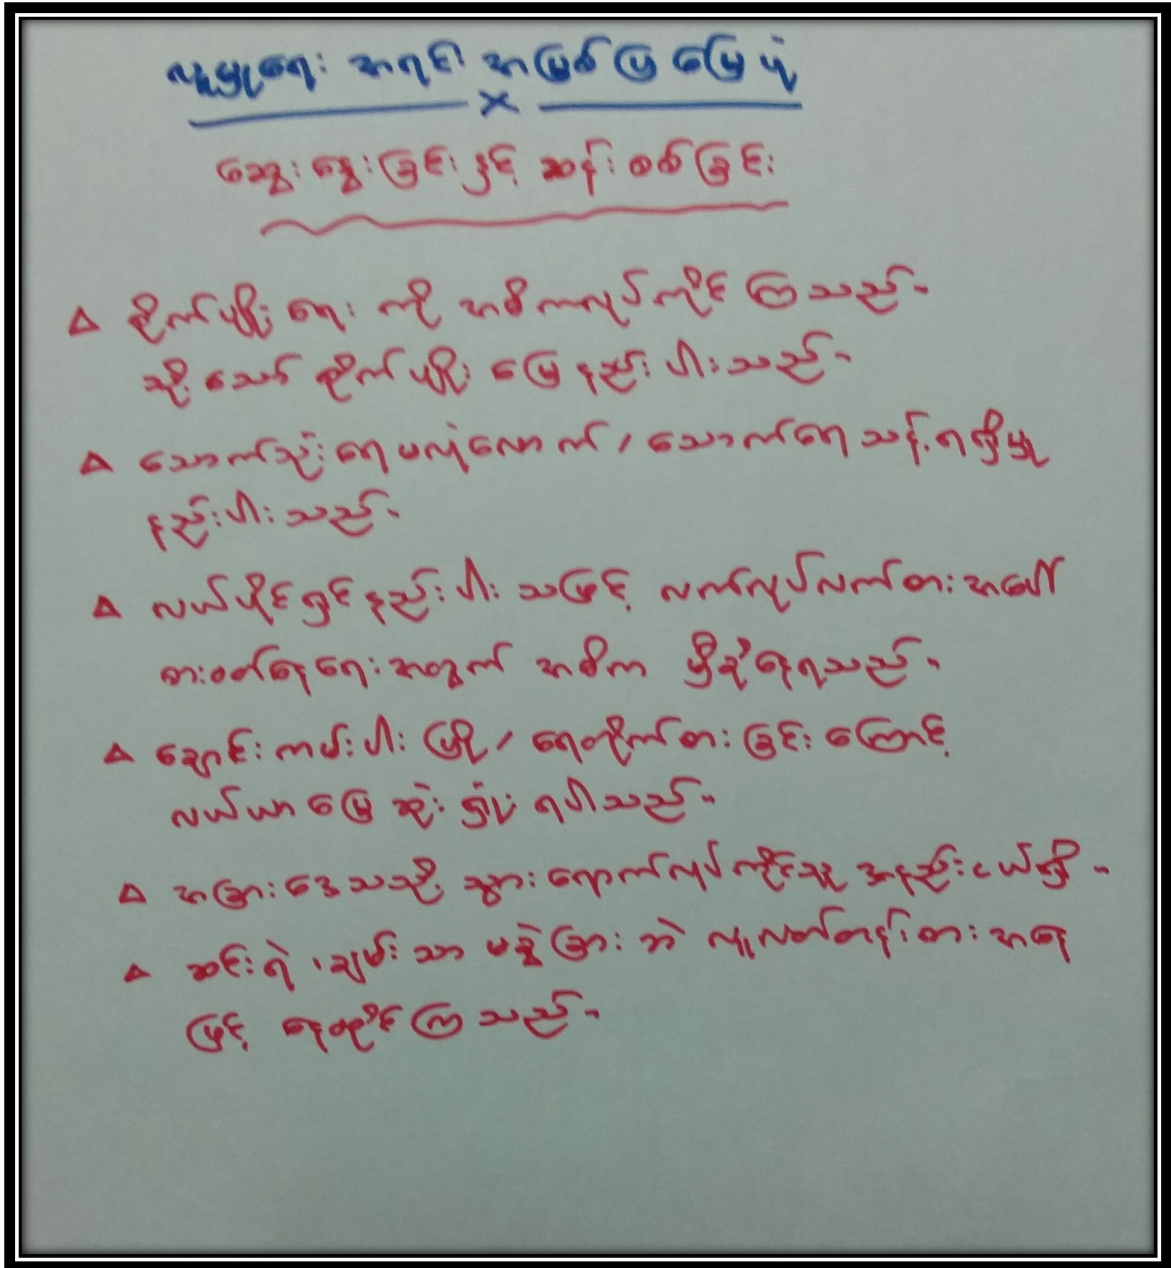 လူမှုရေး အရင်း အမြစ်ပြ မြေပုံ
ဆွေးနွေးခြင်းနှင့် ဆန်းစစ်ခြင်း
Δ စိုက်ပျိုးရေး ကို အဓိကလုပ်ကိုင် ကြသည်။
သို့သော် စိုက်ပျိုး မြေနည်းပါးသည်။
Δ သောက်သုံးရေမလုံလောက်၊ သောက်ရေသန့်ရရှိမှု
နည်းပါးသည်။
Δ လယ်ပိုင်ရှင်နည်းပါး သဖြင့် လက်လုပ်လက်စား အပေါ်
စားဝတ်နေရေးအတွက် အဓိက မှီခိုနေရသည်။
Δ ချောင်းကမ်းပါး ပြို၊ ရေတိုက်စားခြင်းကြောင့်
လယ်ယာမြေ ဆုံးရှုံး ရပါသည်။
Δ အခြားဒေသသို့ သွားရောက်လုပ်ကိုင်သူ အနည်းငယ်ရှိ။
Δ ဆင်းရဲ၊ ချမ်းသာ မခွဲခြားဘဲ လူလတ်တန်းစား အနေ
ဖြင့် နေထိုင်ကြသည်။